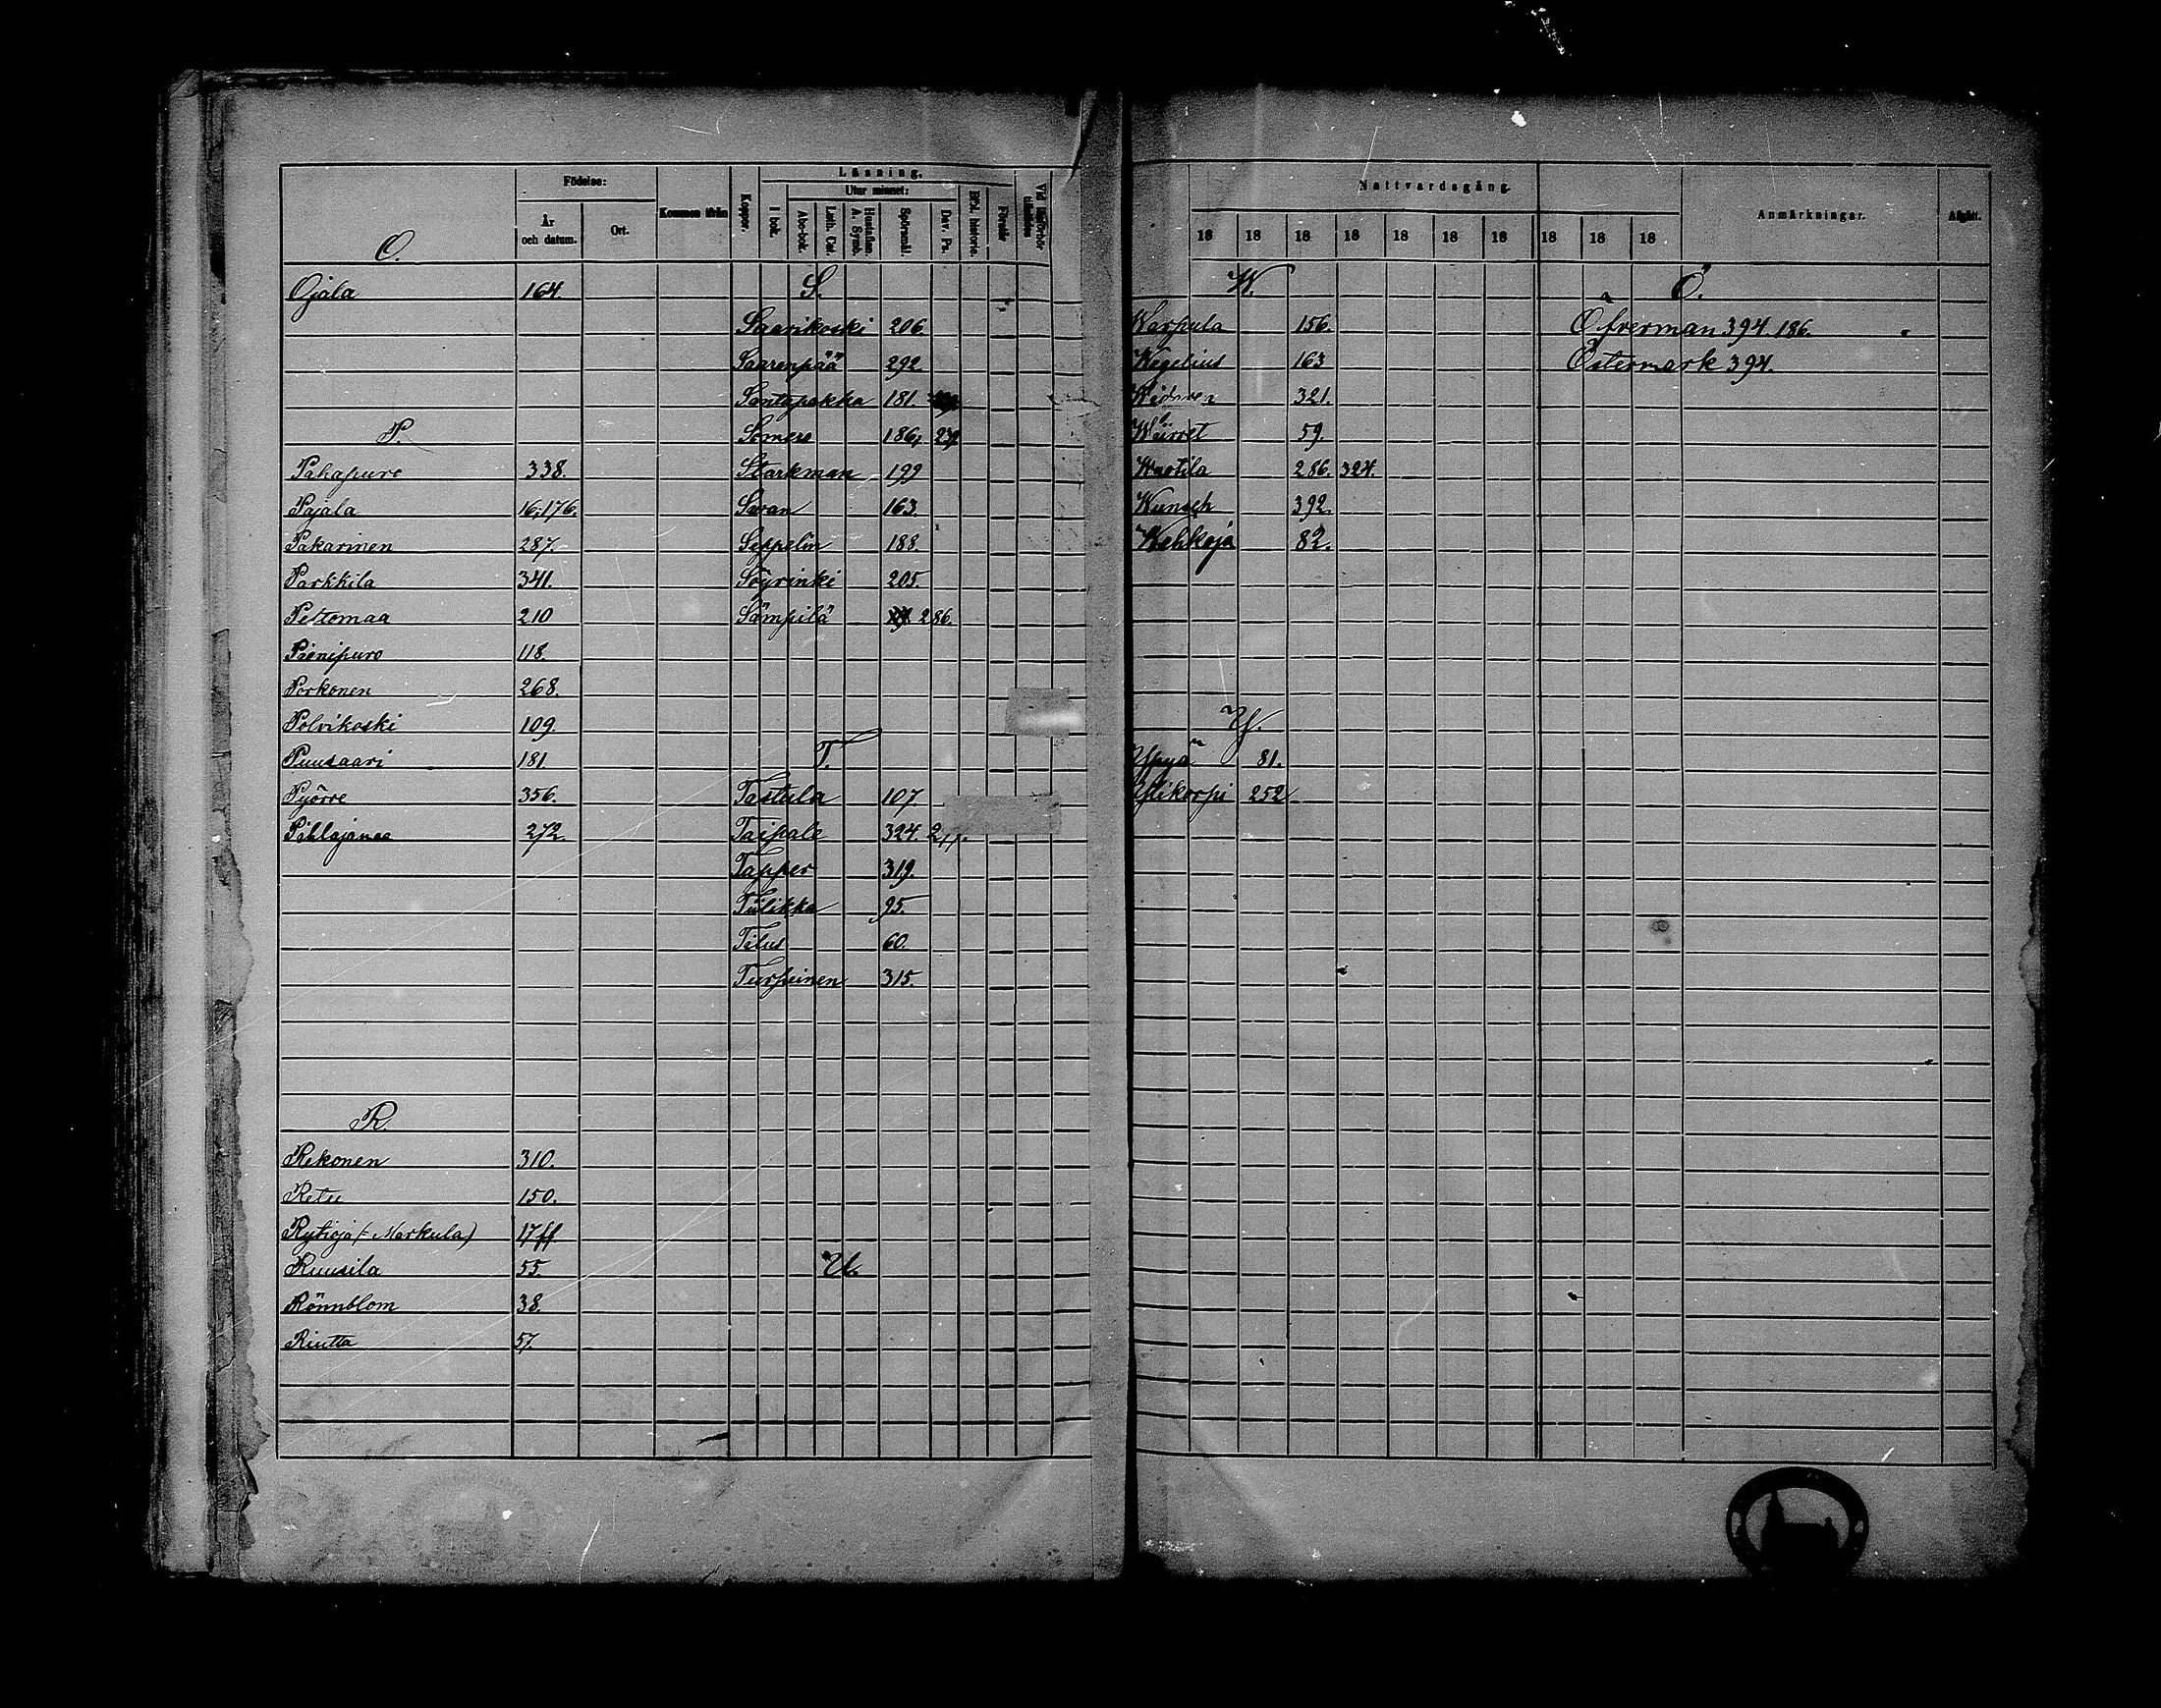 Födelse:
År och datum.
Ort.
Kommen ifrån
Koppor.
Läsning.
I bok.
Utur minnet:
Abc-bok.
Luth. Cat.
Hustaflan A. Symb.
Spörsmål.
Dav. Ps.
Bibl. historie.
Förstår
Vid läsförhör tillstädes
Nattvardsgång.
18 18 18 18 18 18 18 18 18 18
Anmärkningar.
Afgått.
O.
Ojala 164.
P.
Pahapuro 338.
Pajala 16, 176.
Pakarinen 287.
Parkkila 341.
Peltomaa 210
Pienipuro 118.
Porkonen 268.
Polvikoski 109.
Puusaari 181
Pyörre 356.
Pihlajamaa 272.
R.
Rekonen 310.
Retu 150.
Rytioja (= Markula) 17 ff
Ruusila 55.
Rönnblom 38.
Riutta 57.
S.
Saarikoski 206.
Saarenpää 292.
Santapakka 181.
Somero 186,
Starkman 199
Savan 163.
Seppelin 188.
Söyrinki 205.
Sämpilä 286.
T.
Tastula 107
Taipale 324.
Tapper 319.
Tulikka 95.
Tilus 60.
Turpeinen 315.
U.
W.
Warpula 156.
Wegelius 163
321.
Wäirret 59.
Wuotila 286. 324.
Wunsch 392.
Wehkoja 82.
Y.
Yppyä 81.
Ylikorpi 252
Ö.
Öfverman 394. 186.
Östermark 394.